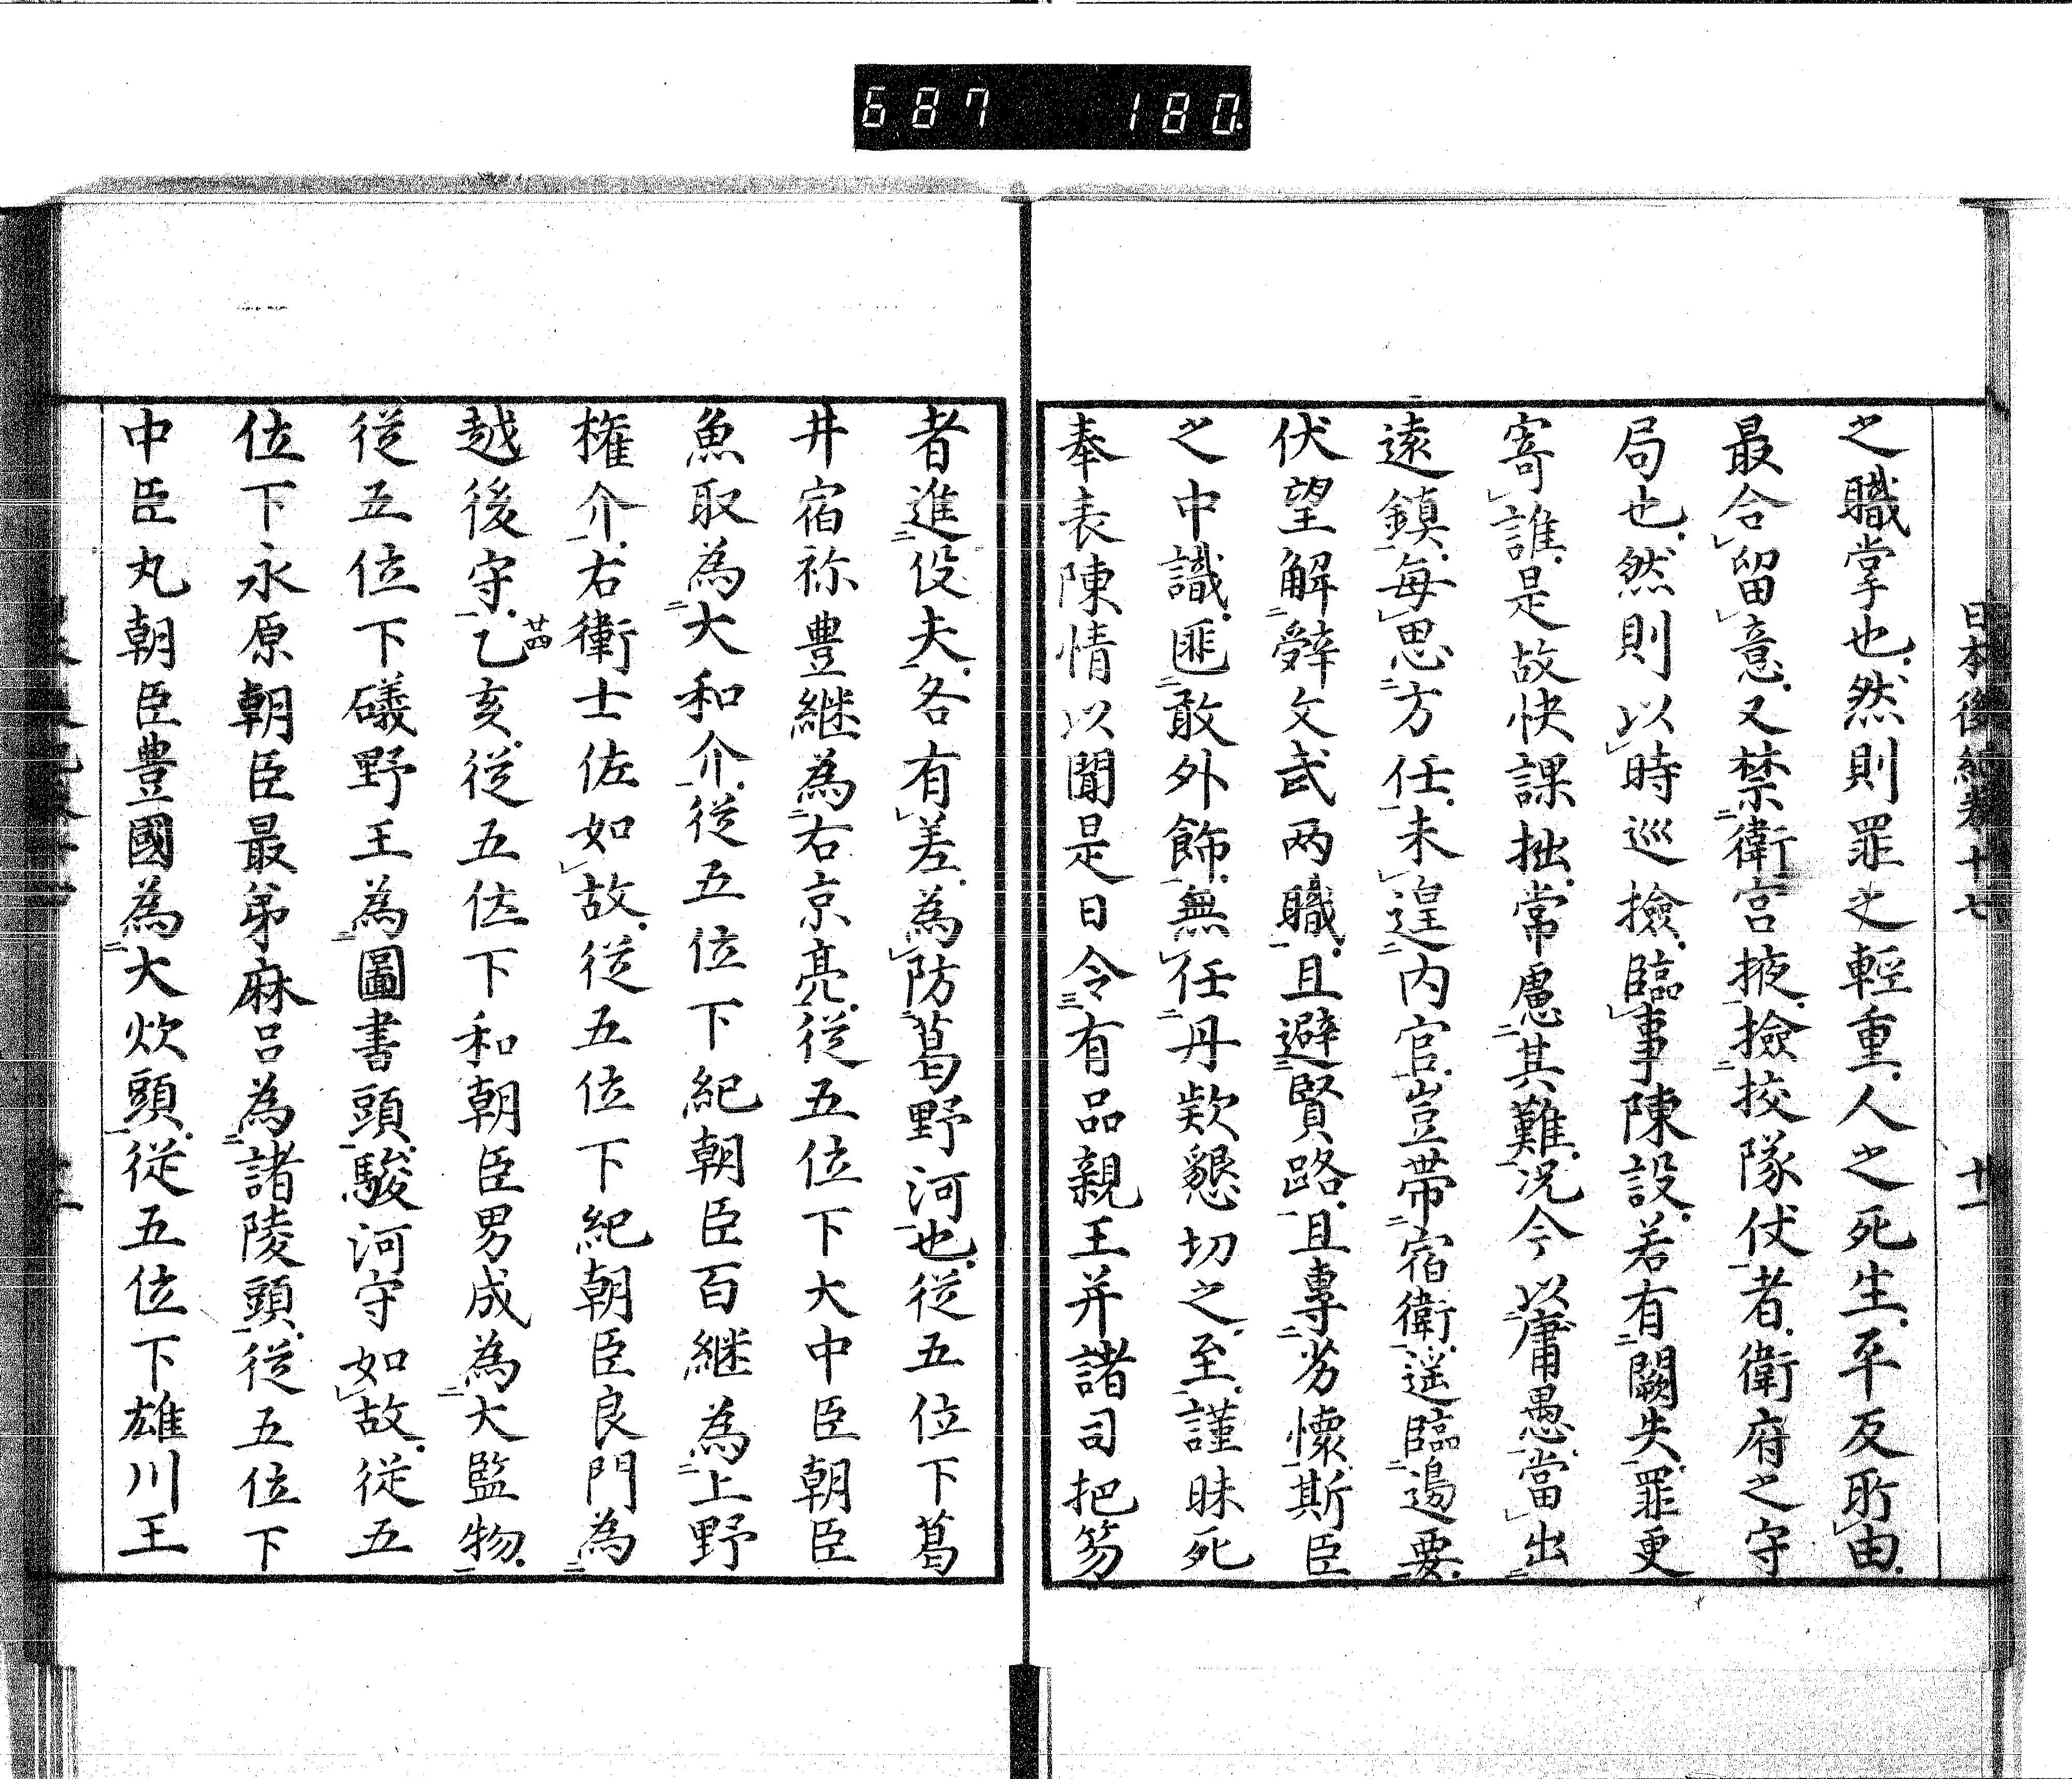 687 180
日本後紀卷十七 十一
之職掌也然則罪之輕重人之死生平反所由
最合留意又禁衛宮掖撿挍隊伏者衛府之守
局也然則以時巡撿臨事陳設若有闕失罪更
寄誰是故快課拙常慮其難況今以庸愚當出
遠鎮每思方任未遑内官豈帶宿衛遥臨邊要
伏望解辤文武两職且避賢路且專劣懷斯臣
之中識匪敢外飾無任丹欵懇切之至謹昧死
奉表陳情以聞是日令有品親王并諸司把笏
者進役夫各有差為防葛野河也從五位下葛
井宿祢豊継為右京亮從五位下大中臣朝臣
魚取為大和介從五位下紀朝臣百継為上野
権介右衛士佐如故從五位下紀朝臣良門為
越後守乙亥從五位下和朝臣男成為大監物
廿四
從五位下礒野王為圖書頭駿河守如故從五
位下永原朝臣最弟麻呂為諸陵頭從五位下
中臣丸朝臣豊國為大炊頭從五位下雄川王